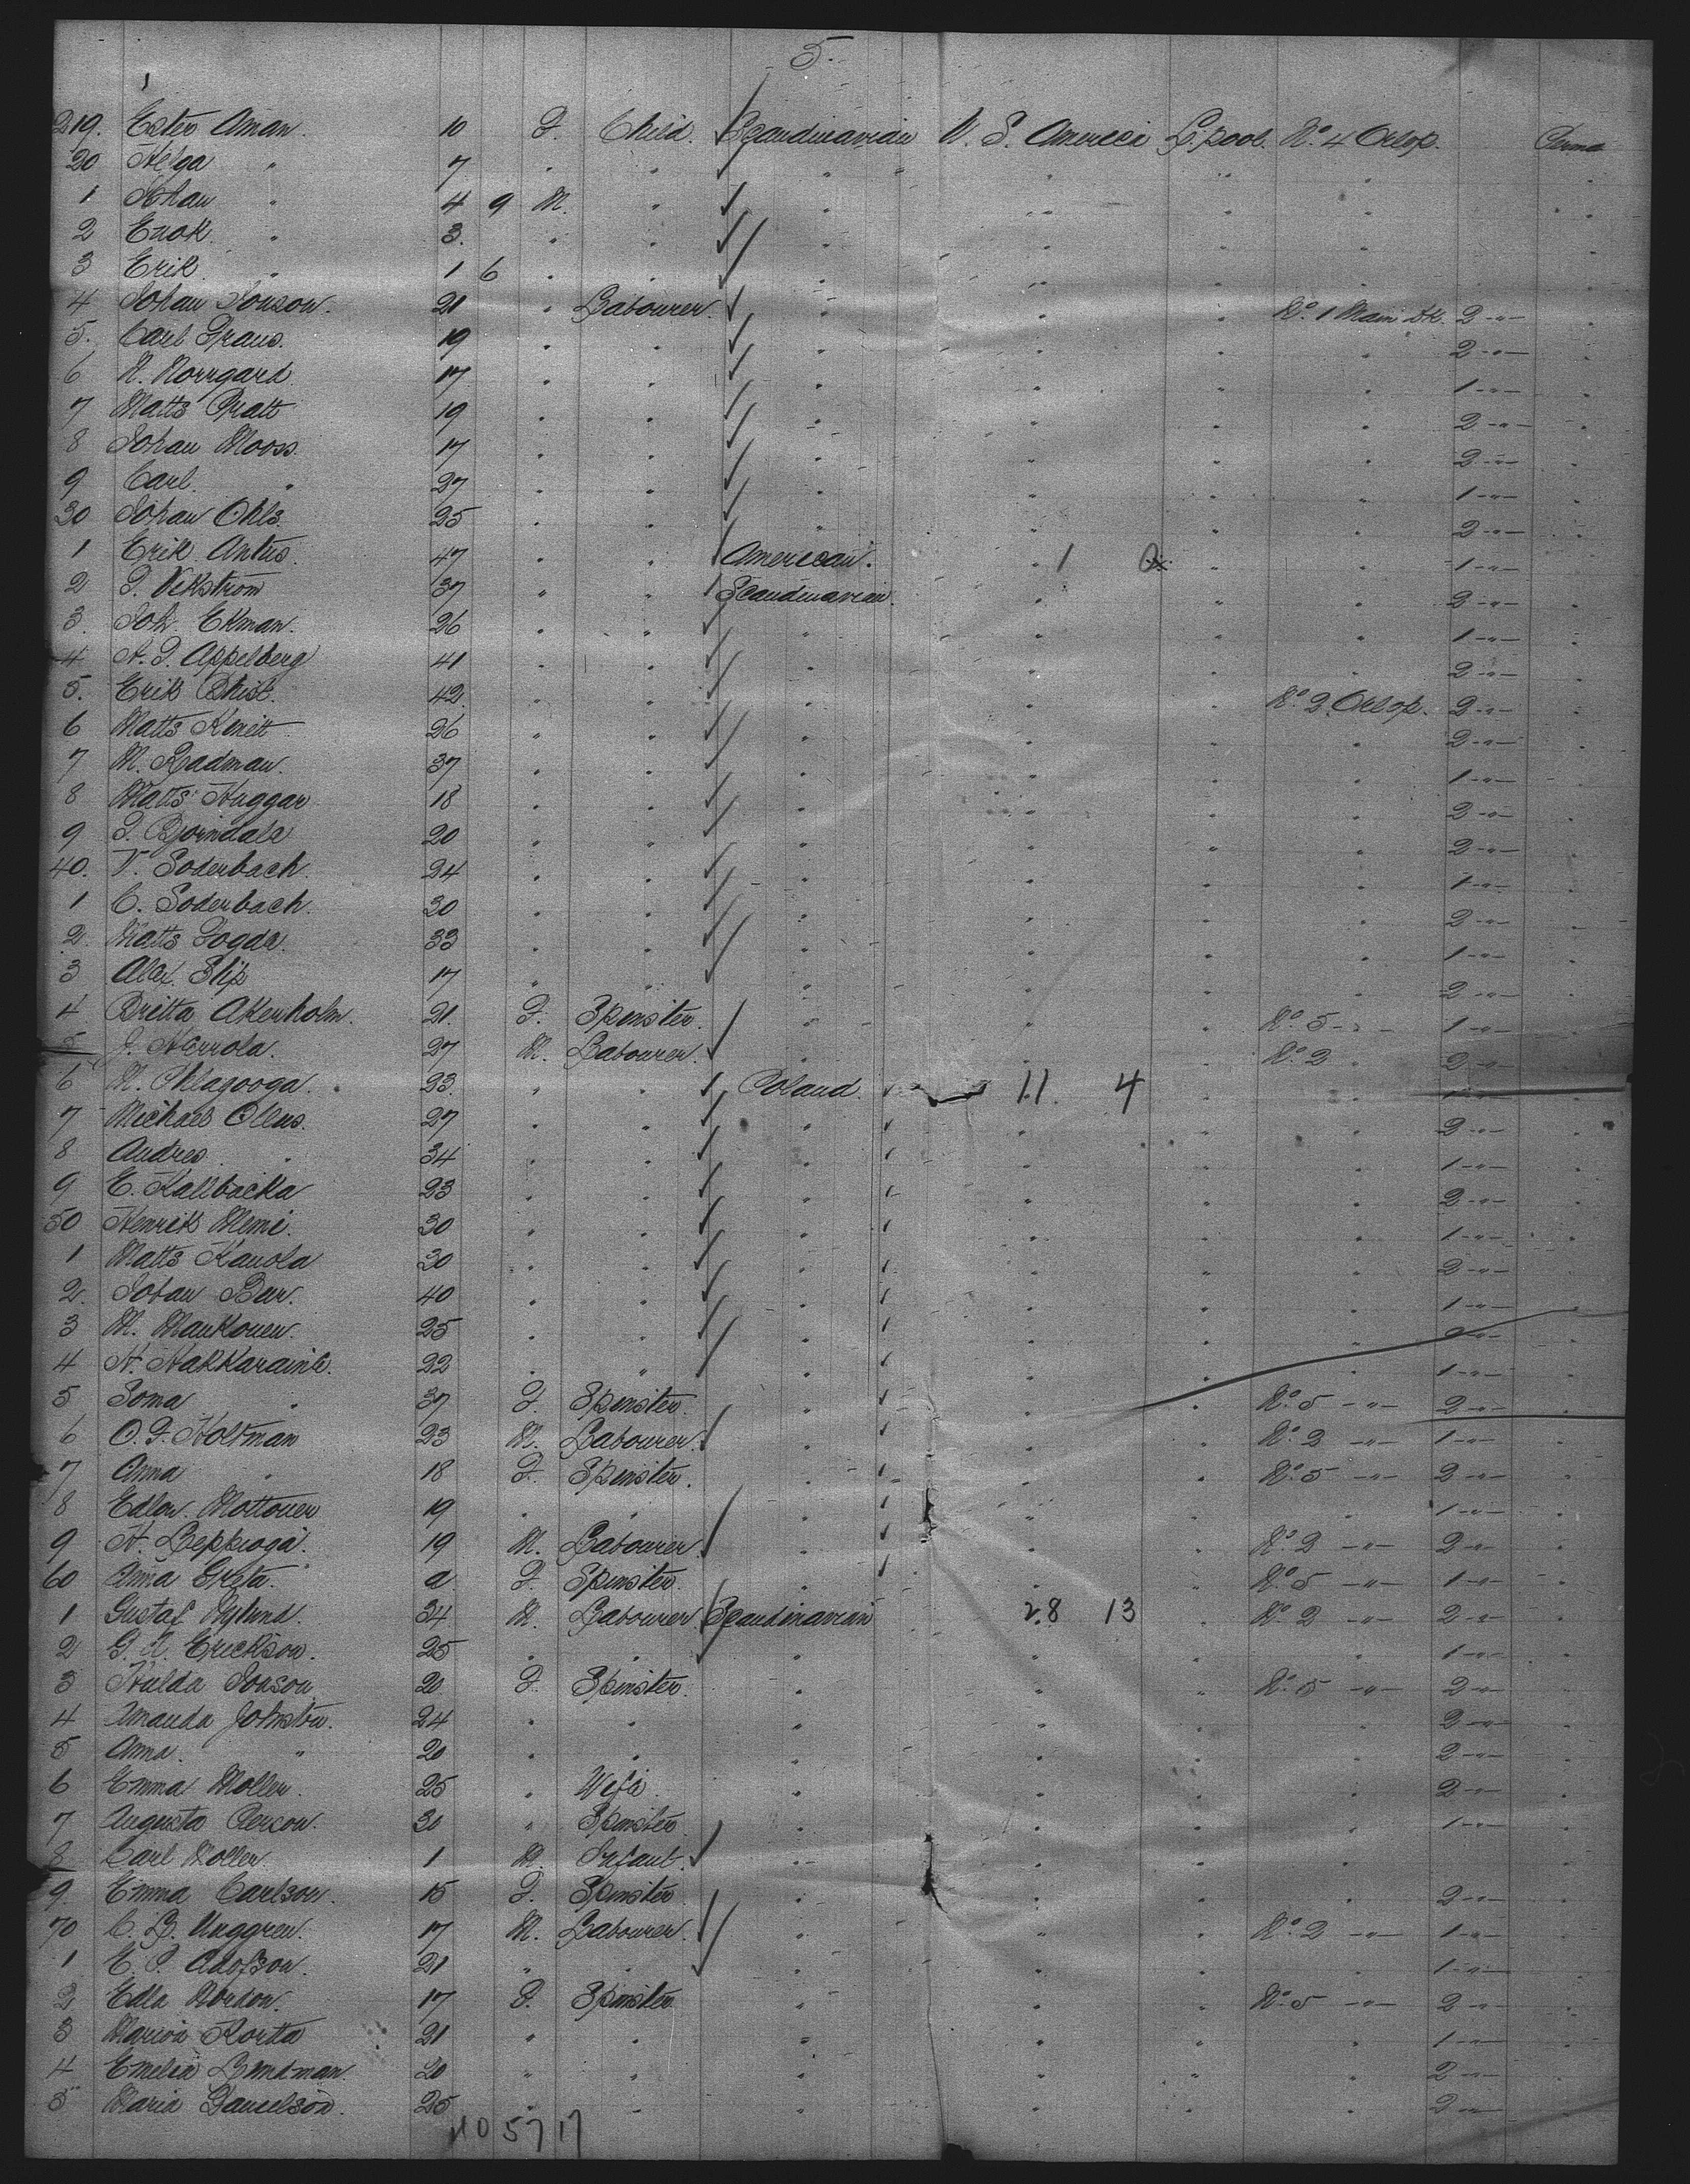 5.
219. Ester Aman. 10 F. Child. Scandinavian U. S. America L.pool. No. 4 Orlop. Perma
20 Helga " 7 " " " " " " "
1 Johan " 4 9 M. " " " " " "
2 Enok. " 3. " " " " " " "
3 Erik. " 1 6 " " " " " "
4 Johan Jonson. 21 " Labourer. " " " No. 1 Main Dk. 2 -"-
5. Carl Graus. 19 " " " " " " 2 -"-
6 N. Norrgard 17 " " " " " " 1 -"-
7 Matts Pratt 19 " " " " " " 2 -"- "
8 Johan Mooss. 17 " " " " " " 2 -"- "
9 Carl. " 27 " " " " " " 1 -"- "
30 Johan Ohls. 25 " " " " " " 2 -"- "
1 Erik Antus. 47 " " American. " 1 " " 1 -"- "
2 J. Vikstrom 37 " " Scandinavian. " " " 2 -"- "
3. Joh. Ekman. 26 " " " " " " 1 -"- "
4 A. J. Appelberg 41 " " " " " " 2 -"- "
5. Erik 42. " " " " " No. 2 Orlop. 2 -"- "
6 Matts 26 " " " " " " 2 -"- "
7 M. Radman. 37 " " " " " " 1 -"- "
8 Matts Huggar 18 " " " " " " 2 -"- "
9 J. Bjorndale 20 " " " " " " 2 -"- "
40. V. Soderbach. 24 " " " " " " 1 -"- "
1 C. Soderbach. 30 " " " " " " 2 -"- "
2. Matts Fogde. 33 " " " " " " 1 -"- "
3 Alex. Slip 17 " " " " " " 2 -"- "
4 Britta Akerholm. 21. F. Spinster. " " " No. 5 -"- 1 -"- "
5 J. Herrola. 27 M. Labourer. " " " No. 2 " 2 -"- "
6 M. 23. " " Poland. 11. 4 " " 1 -"- "
7 Michael Ollus. 27 " " " " " " 2 -"- "
8 Andres " 34 " " " " " " 1 -"- "
9 E. Kallbacka 23 " " " " " " 2 -"- "
50 Henrik Memi. 30 " " " " " " 1 -"- "
1 Matts Kanola 30 " " " " " " 2 -"- "
2. Johan Bar. 40 " " " " " " 1 -"- "
3 M. Mankonen. 25 " " " " " " 2 -"- "
4 H. 22 " " " " " " 1 -"- "
5 Soma " 37 F. Spinster. " " " No. 5 -"- 2 -"- "
6 O. F. Holtman 23 M. Labourer. " " " No. 2 -"- 1 -"- "
7 Anna " 18 F. Spinster. " " " No. 5 -"- 2 -"- "
8 Mottonen 19 " " " " " " 1 -"- "
9 H. Leppioga. 19 M. Labourer. " " " No. 2 -"- 2 -"- "
60 Anna Greta. " a F. Spinster. " " " No. 5 -"- 1 -"- "
1 Gustaf Nylund. 34 M. Labourer. Scandinavian 28 13 " No. 2 -"- 2 -"- "
2 G. A. Erickson. 25 " " " " " " 1 -"- "
3 Hulda Jonson 20 F. Spinster. " " " No. 5 -"- 2 -"- "
4 Amanda 24 " " " " " " 2 -"- "
5 Anna. " 20 " " " " " " 2 -"- "
6 Emma Moller. 25 " Wife. " " " " 2 -"- "
7 Augusta Person. 30 " Spinster. " " " " 1 -"- "
8 Carl Moller. 1 M. Infant. " " " " "
9 Emma Carlson. 15 F. Spinster " " " " 2 -"- "
70 C. B. Unggren. 17 M. Labourer. " " " No. 2 -"- 1 -"- "
1 E. P. Adolfson. 21 " " " " " " 1 -"- "
2 Edla 17 F. Spinster " " " No. 5 -"- 2 -"- "
3 21 " " " " " " 1 -"- "
4 Emelia Lindman. 20 " " " " " " 2 -"- "
5 Maria Danielson. 25 " " " " " " 2 -"- "
40 57 17